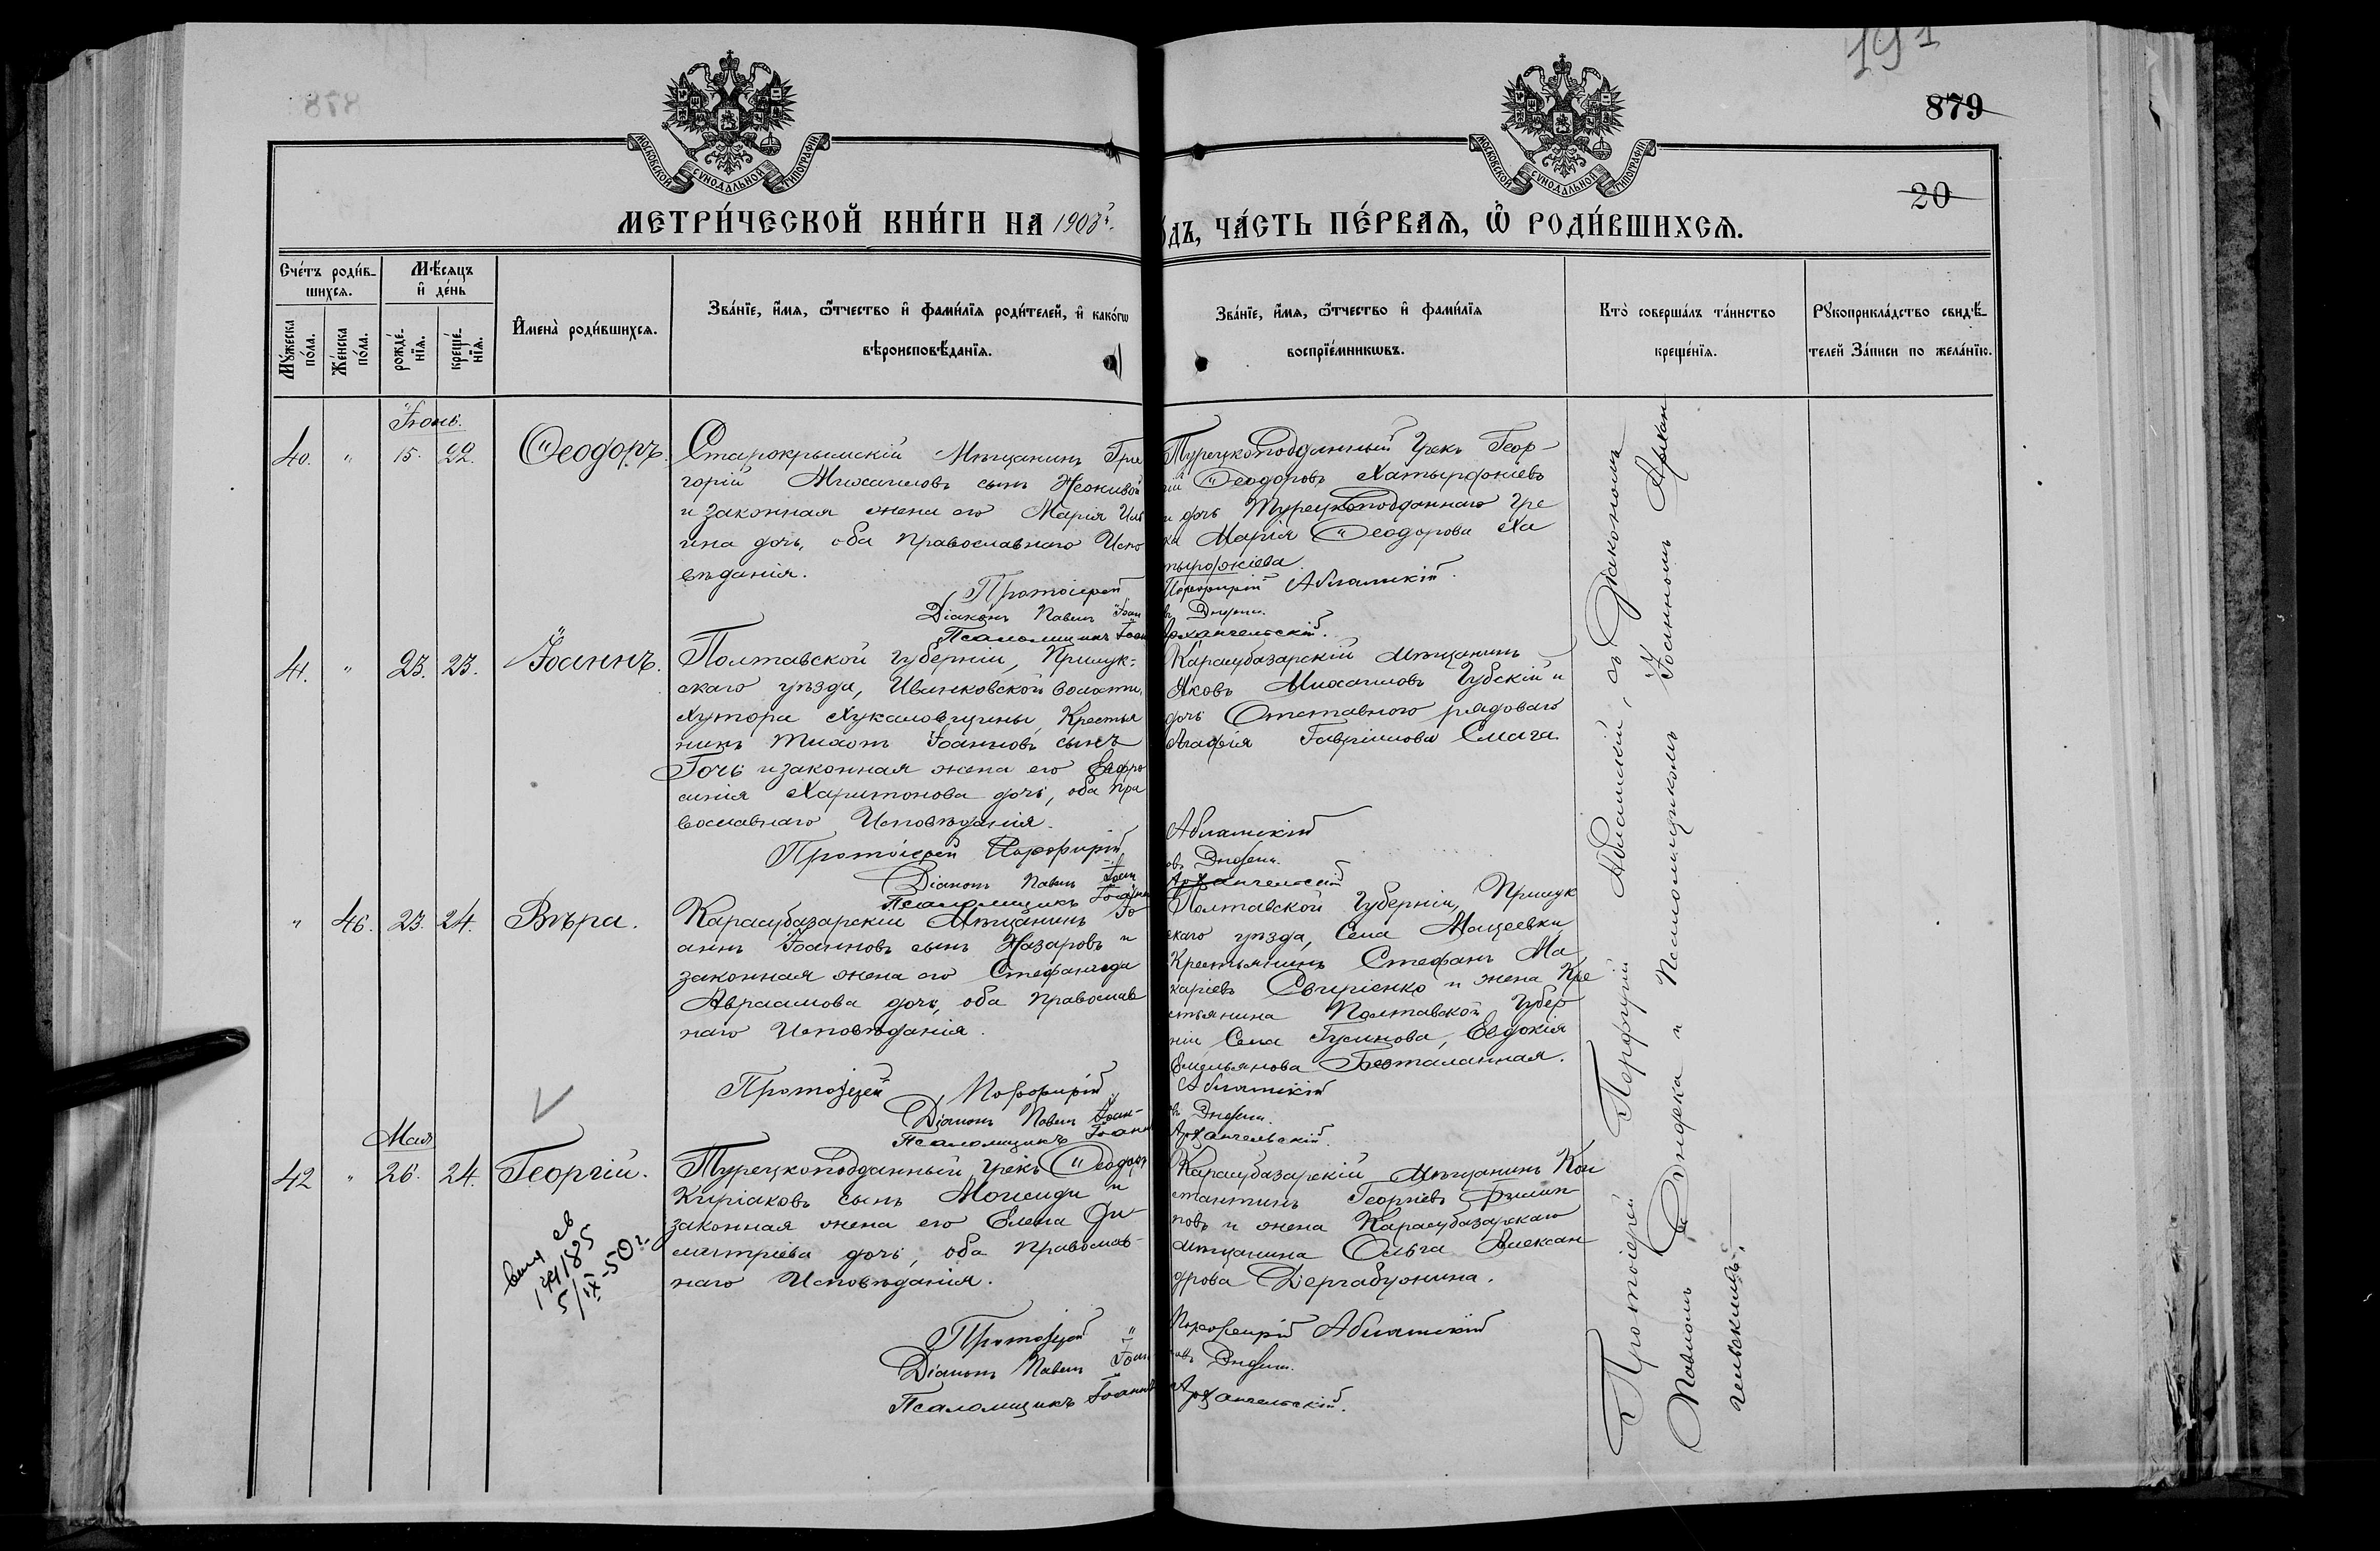 191
879
20
МОСКОВСКОЙ СѴНОДАЛЬНОЙ ТИПОГРАФІИ
МОСКОВСКОЙ СѴНОДАЛЬНОЙ ТИПОГРАФІИ
МЕТРИ́ЧЕСКОЙ КНИ́ГИ НА 1903 г.
ДЪ, ЧА́СТЬ ПЕ́РВАѦ, Ѡ҆ РОДИ́ВШИХСѦ.
Сче́тъ роди́в-
шихсѧ.
Мѣ́сѧцъ
и҆ де́нь
Мꙋ́жеска
по́ла.
Же́нска
по́ла.
рожде́-
нїѧ.
креще́-
нїѧ.
И҆мена̀ роди́вшихсѧ.
Зва́нїе, и҆́мѧ, ѻ҆́тчество и҆ фами́лїѧ роди́телей, и҆ како́гѡ
вѣроисповѣ́данїѧ.
Зва́нїе, и҆́мѧ, ѻ҆́тчество и҆ фами́лїѧ
воспрїе́мникѡвъ.
Кто̀ соверша́лъ та́инство
креще́нїѧ.
Рꙋкоприкла́дство свидѣ́-
телей За́писи по жела́нїю.
Іюнь.
40. " 15. 22. Ѳеодоръ.
Старокрымскій Мѣщанинъ Гри
горій Михаиловъ сынъ Неживой
и законная жена его Марія Иль
ина дочь, оба православнаго Испо
вѣданія.
Протоіерей
Діаконъ Павелъ Іоан
Псаломщикъ Іоан
Турецкоподданный Грекъ Геор-
гій Ѳеодоровъ Хатырджіевъ
и дочь Турецкоподданнаго Гре
ка Марія Ѳеодорова Ха
тырджіева.
Порфирій Абламскій.
въ Эндека.
Архангельскій.
41. " 23. 23. Іоаннъ.
Полтавской губерніи, Прилук-
скаго уѣзда, Иванковской волости,
Хутора Хукаловщины, Крестья
нинъ Тихонъ Іоанновъ сынъ
Гочь и законная жена его Евфро
синія Харитонова дочь, оба пра
вославнаго Исповѣданія.
Протоіерей Порфирій
Діаконъ Павелъ Іоан
Псаломщикъ Іоанн
Карасубазарскій Мѣщанинъ
Яковъ Михаиловъ Губскій и
дочь Отставного рядоваго
Агафія Гавріилова Смага.
Абламскій
овъ Эндека.
Архангельскій
" 46. 23. 24. Вѣра.
Карасубазарскій Мѣщанинъ Іо
аннъ Іоанновъ сынъ Назаровъ и
законная жена его Стефанида
Авраамова дочь, оба православ
наго Исповѣданія.
Протоіерей Порфирій
Діаконъ Павелъ Іоан-
Псаломщикъ Іоанн
Полтавской Губерніи, Прилук
скаго уѣзда, Села Мацеевки
Крестьянинъ Стефанъ Ма
каріевъ Свиріенко и жена Кре
стьянина Полтавской Губер
ніи, Села Гусинова, Евдокія
Емельянова Безталанная.
Абламскій
въ Эндека.
Архангельскій.
Мая
42 " 26. 24. Георгій.
Турецкоподданный грекъ Ѳеодоръ
Киріаковъ сынъ Моисиди и
законная жена его Елена Ди-
митріева дочь, оба православ-
наго Исповѣданія.
Протоіерей
Діаконъ Павелъ Іоан
Псаломщикъ Іоаннъ
Карасубазарскій Мѣщанинъ Кон
стантинъ Георгіевъ Филип
повъ и жена Карасубазарскаго
мѣщанина Ольга Алексан
дрова Дергабужина.
Порфирій Абламскій
овъ Эндека.
Архангельскій.
5/IX-50 г.
Протоіерей Порфирій Абламскій, съ Діакономъ
Павломъ Эндека и Псаломщикомъ Іоанномъ Архан
гельскимъ.